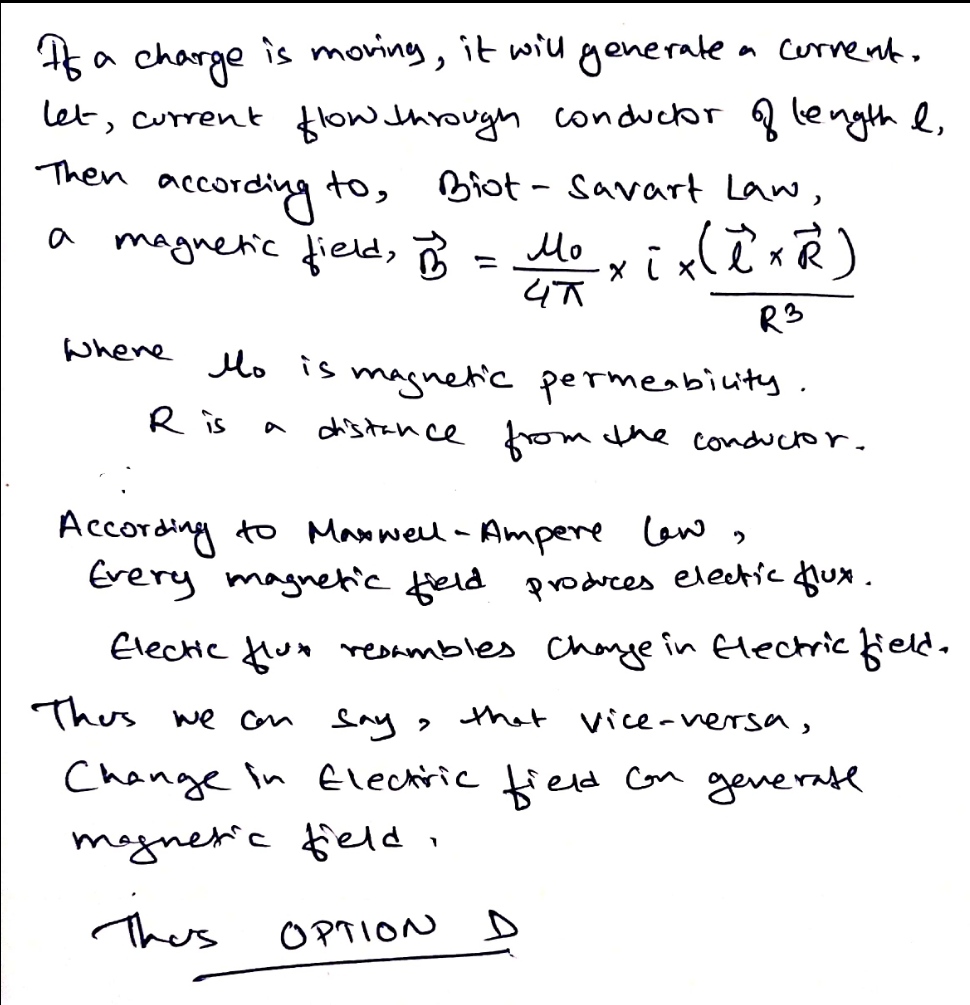 If a charge is moving, it will generate a current.
let, current flow through conductor of length l,
Then according to, Biot - Savart Law,
a magnetic field, B⃗ = μ₀/4π × i × (l⃗ × R⃗)/R³
Where μ₀ is magnetic permeability.
R is a distance from the conductor.
According to Maxwell - Ampere law,
Every magnetic field produces electic flux.
Electic flux resambles Change in Electric field.
Thus we can say, that vice-versa,
Change in Electric field can generate
magnetic field.
Thus OPTION D